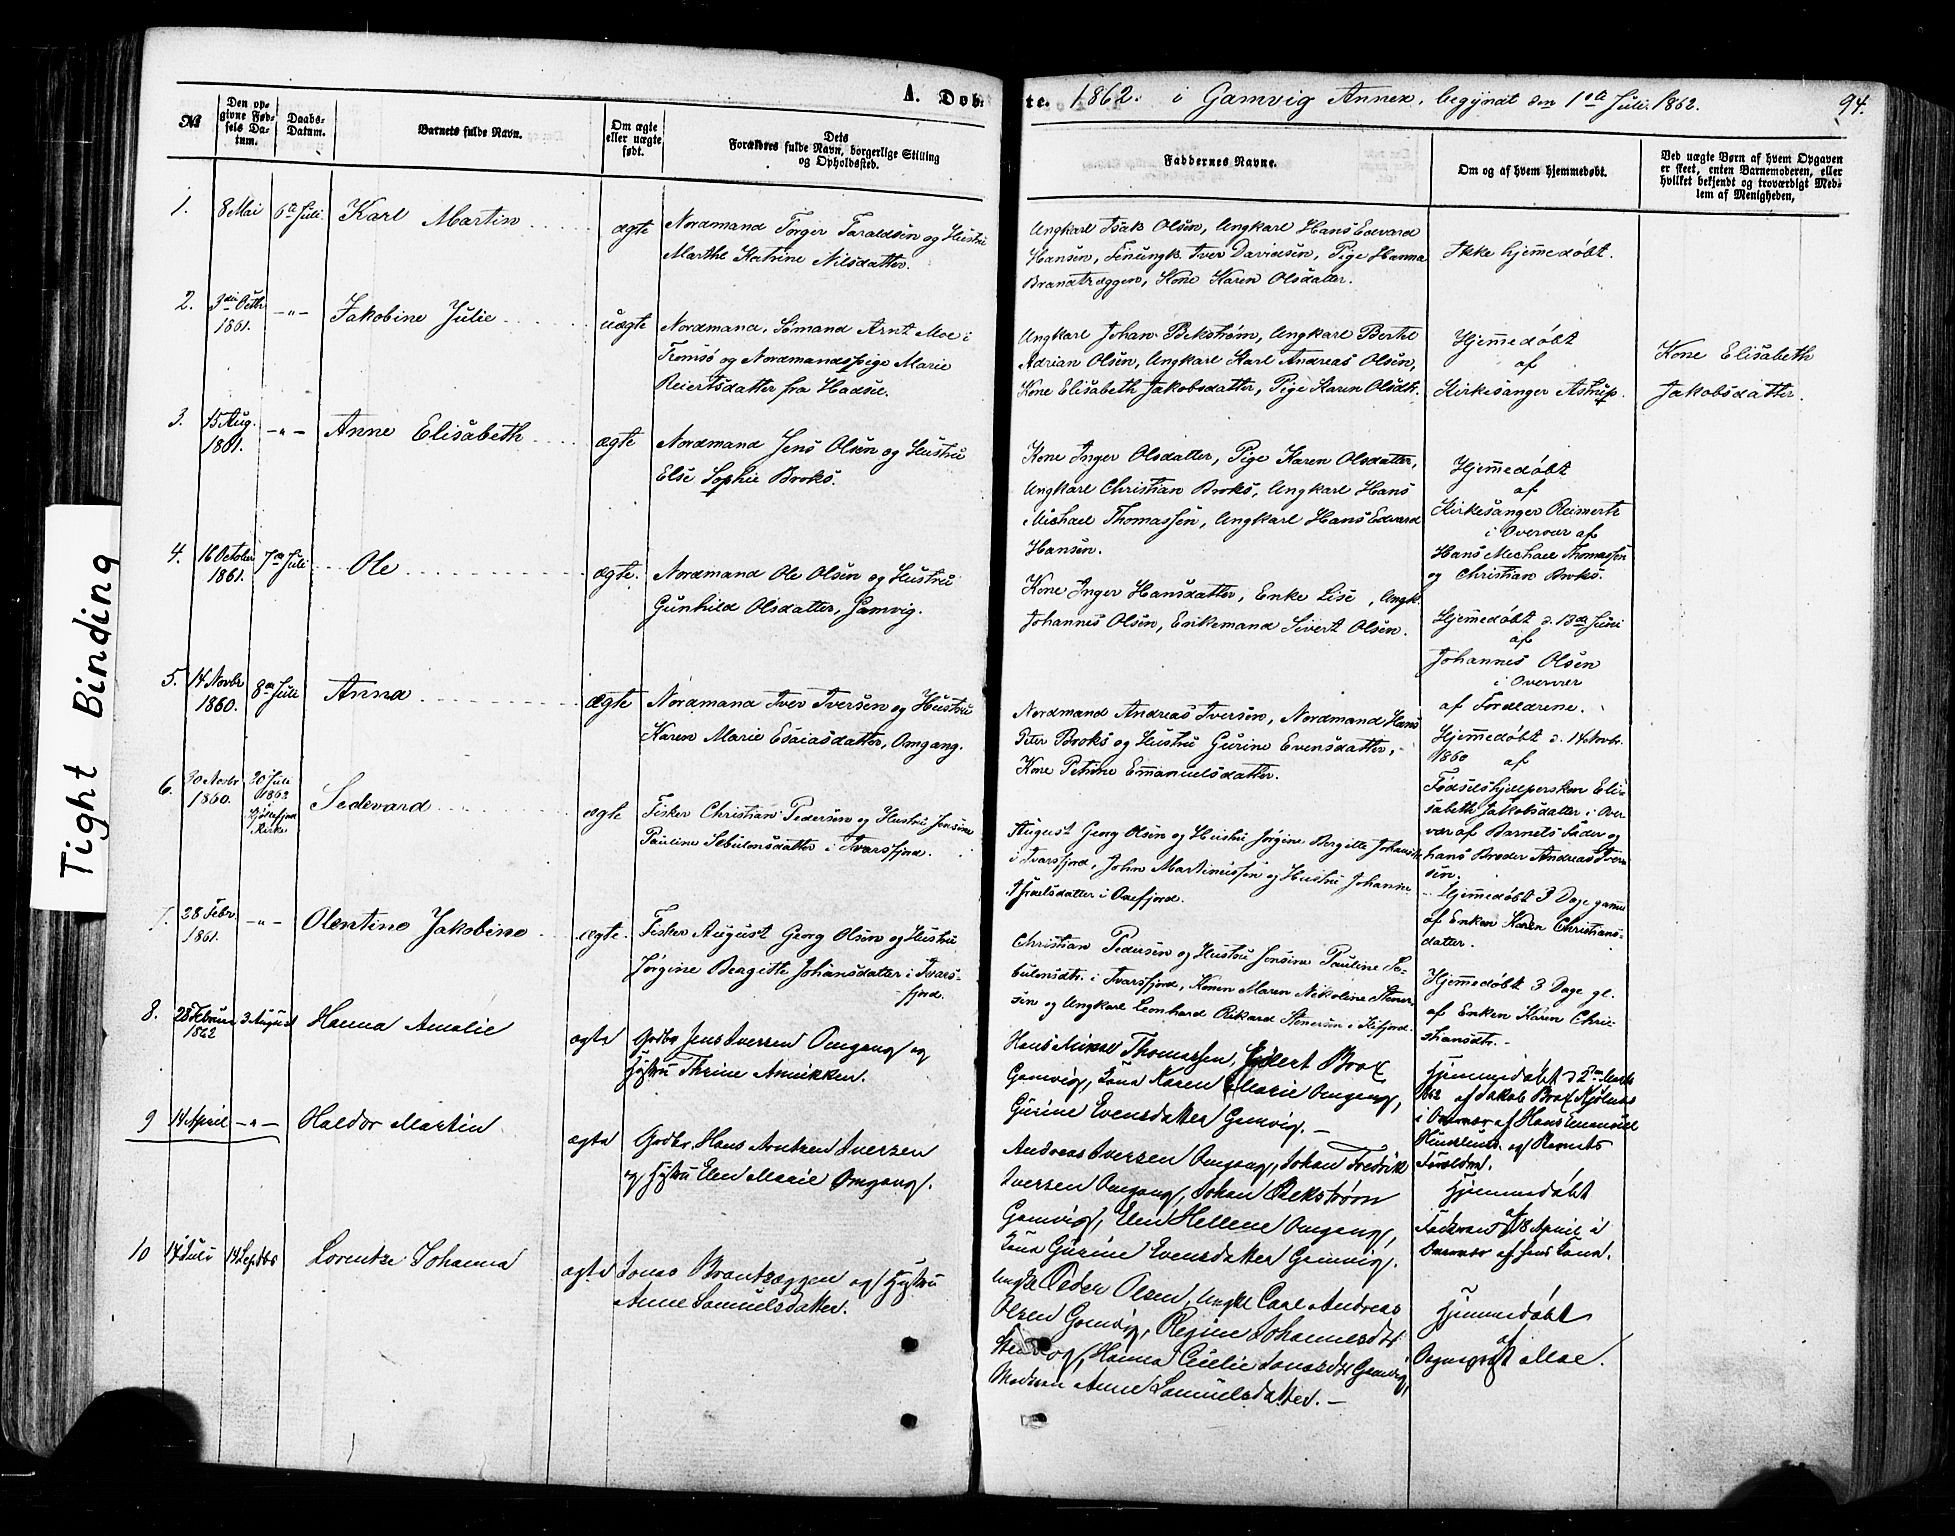 A. Døb-
te. 1862. i Gamvig Annex, begyndt den 1ste Juli 1862. 94.
№
Den op-
givne Fød-
sels Da-
tum.
Daabs-
Datum.
Barnets fulde Navn.
Om ægte
eller uægte
født.
Dets
Forældres fulde Navn, borgerlige Stilling
og Opholdssted.
Faddernes Navne.
Om og af hvem hjemmedøbt.
Ved uægte Børn af hvem Opgaven
er skeet, enten Barnemoderen, eller
hvilket bekjendt og troværdigt Med-
lem af Menigheden,
1.
8 Mai
6te Juli.
Karl Martin
ægte
Nordmand Torger Taraldsen og Hustru
Marthe Katrine Nilsdatter.
Ungkarl Isak Olsen, Ungkarl Hans Edvard
Hansen, Finungk. Iver Davidsen, Pige Hanna
Brandtzæggen, Kone Karen Olsdatter.
Ikke hjemmedøbt.
2.
3die Octbr
1861.
-"-
Jakobine Julie
uægte
Nordmand, Sømand Arnt Moe i
Tromsø og Nordmandspige Marie
Reiertsdatter fra Hadsel.
Ungkarl Johan Bekstrøm, Ungkarl Berthe
Adrian Olsen, Ungkarl Karl Andreas Olsen,
Kone Elisabeth Jakobsdatter, Pige Karen Olsdtr.
Hjemmedøbt
af
Kirkesanger Astrup.
Kone Elisabeth
Jakobsdatter.
3.
15 Aug.
1861.
-"-
Anne Elisabeth
ægte
Nordmand Jens Olsen og Hustru
Else Sophie Broks.
Kone Inger Olsdatter, Pige Karen Olsdatter,
Ungkarl Christian Broks, Ungkarl Hans
Michael Thomassen, Ungkarl Hans Edvard
Hansen.
Hjemmedøbt
af
Kirkesanger Reimertz
i Overvær af
Hans Michael Thomassen
og Christian Broks.
4.
16 October
1861.
7de Juli
Ole
ægte.
Nordmand Ole Olsen og Hustru
Gunhild Olsdatter, Gamvig.
Kone Inger Hansdatter, Enke Lise , Ungk.
Johannes Olsen, Enkemand Sivert Olsen.
Hjemmedøbt d. 13de Juni
af
Johannes Olsen
i Overvær
af Forældrene.
5.
14 Novbr
1860.
8de Juli
Anna
ægte
Nordmand Iver Iversen og Hustru
Karen Marie Esaiasdatter, Omgang.
Nordmand Andreas Iversen, Nordmand Hans
Peter Broks og Hustru Gurine Evensdatter,
Kone Petrine Emanuelsdatter.
Hjemmedøbt d. 14 Novbr.
1860 af
Fødselshjelpersken Eli-
sabeth Jakobsdatter i Over
vær af Barnets Fader og
hans Broder Andreas Iver
sen.
6.
30 Novbr
1860.
20 Juli
1862
Kjøllefjord
Kirke
Sedevard
ægte
Fisker Christian Pedersen og Hustru Jensine
Pauline Sebulonsdatter i Ivarsfjord.
August Georg Olsen og Hustru Jørgine Bergitte Johansdtr
i Ivarsfjord, John Martinussen og Hustru Johanne
Israelsdatter i Oxefjord.
Hjemmedøbt 3 Dage gamm.
af Enken Karen Christians-
datter.
7.
28 Febr.
1861.
-"-
Olentine Jakobine
ægte.
Fisker August Georg Olsen og Hustru
Jørgine Bergitte Johansdatter i Ivars-
fjord.
Christian Pedersen og Hustru Jensine Pauline Se-
bulonsdtr. i Ivarsfjord, Konen Maren Nikoline Stener
sen og Ungkarl Leonhard Rikard Stenersen i Kifjord.
Hjemmedøbt 3 Dage gl.
af Enken Karen Chri-
stiansdtr.
8.
28 Februar
1862
3 August
Hanna Amalie
ægte
Gdbr. Jens Iversen Omgang og
Hustru Thrine Annikken.
Hans Mikal Thomassen, Edert Brox
Gamvig, Kona Karen Marie Omgang,
Gurine Evensdatter Gamvig.
Hjemmedøbt d 2den Marts
1862 af Jakob Brox
i Overvær af Hans Emanuel
og Barnets
Forældre.
9
14 April
-"-
Haldor Martin
ægte
Gdbr. Hans Arntzen Iversen
og Hustru Elen Marie Omgang.
Andreas Iversen Omgang, Johan Fredrik
Iversen Omgang, Johan Bekstrøm
Gamvig, Elen Hellene Omgang,
Kona Gurine Evensdatter Gamvig.
Hjemmedøbt
af
Faderen d 18 April i
Overvær af hans Kona.
10
14 Juli
14 Septbr
Lorentze Johanna
ægte
Jonas Brantzæggen og Hustru
Anne Samuelsdatter.
Ungk Peder Olsen, Ungkl Carl Andreas
Olsen Gamvig, Regine Johannesdtr
Hanna Cecilie Jonasdtr Gamvig,
Moderen Anne Samuelsdatter.
Hjemmedøbt
af
Moe.
Tight Binding